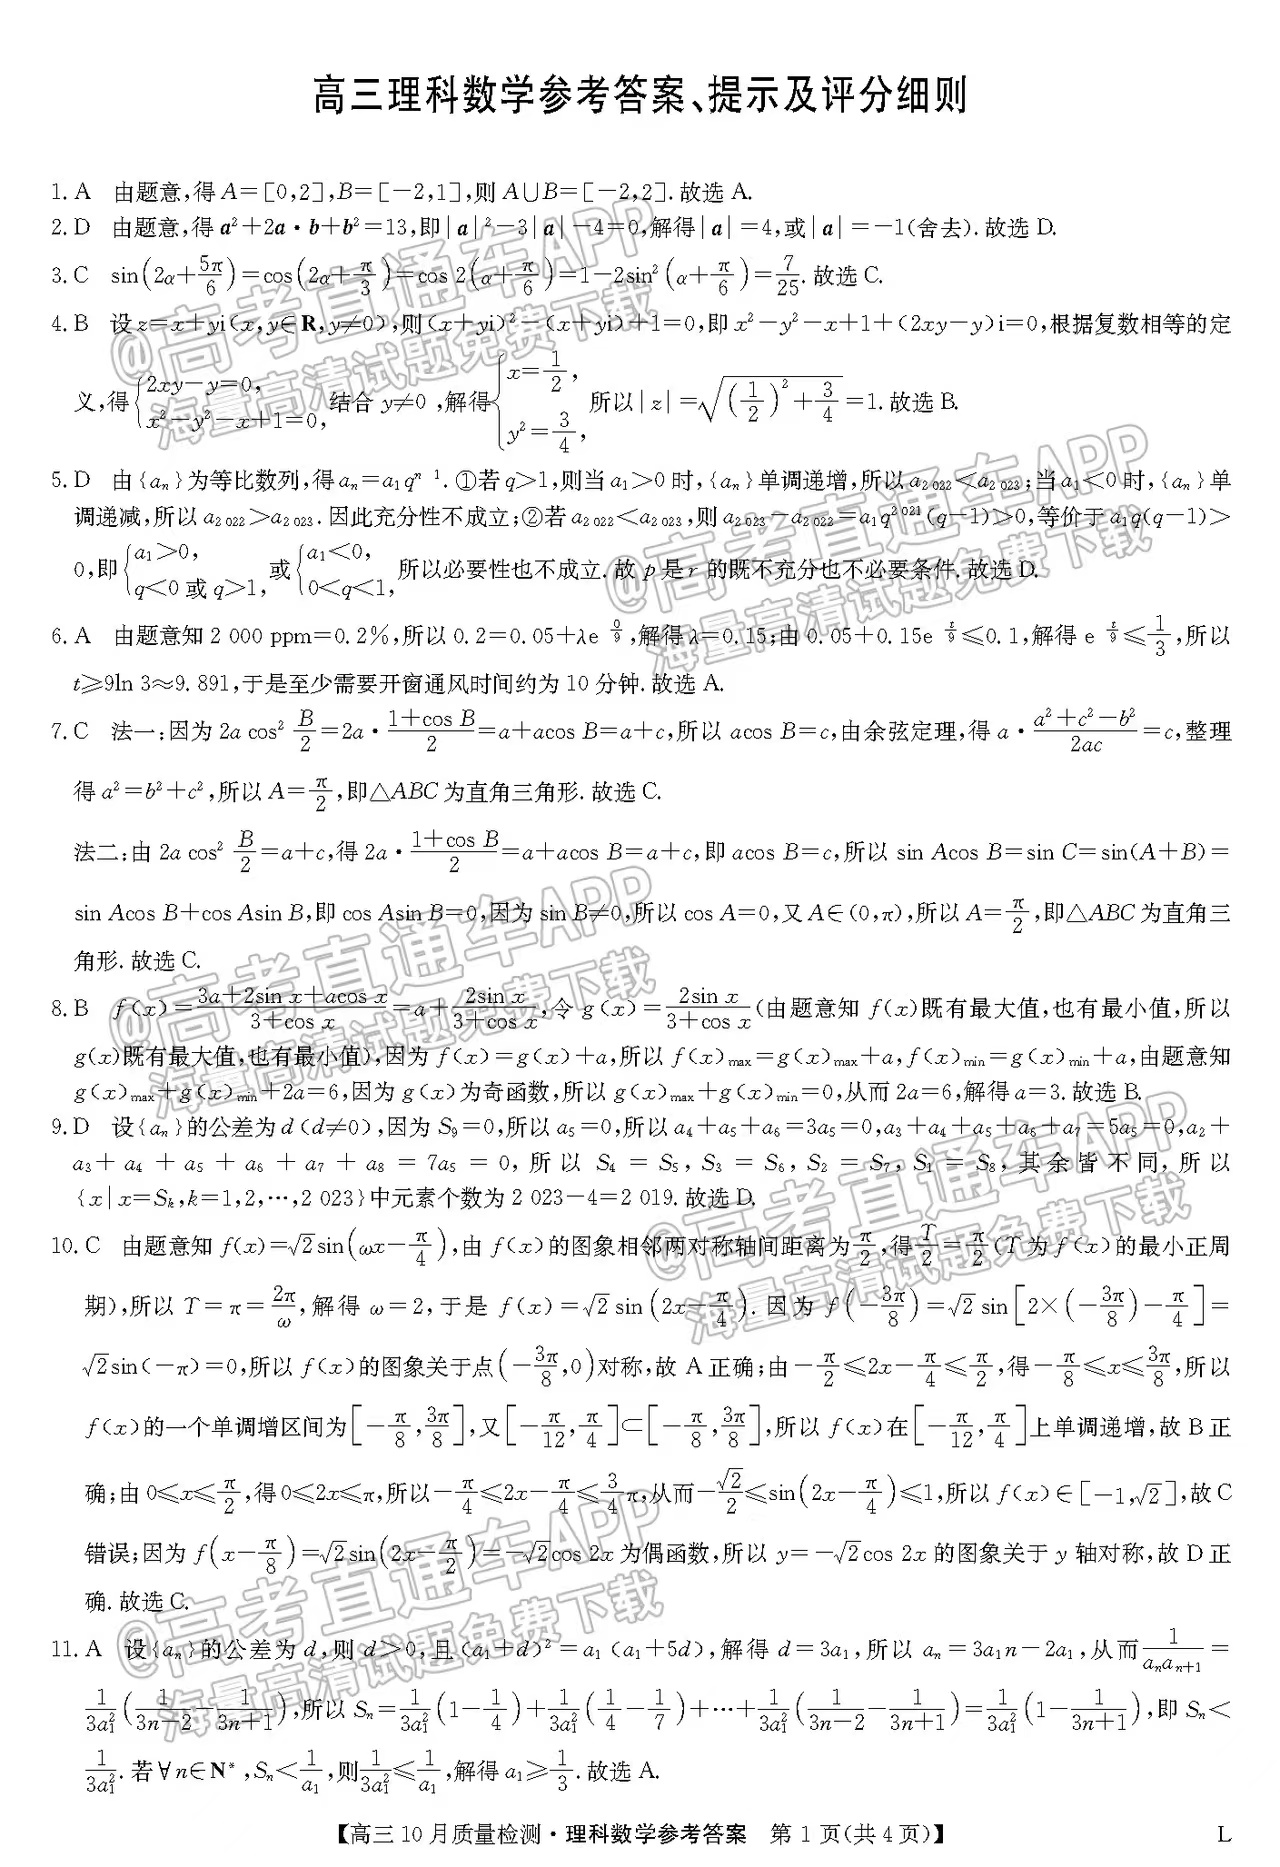 高三理科数学参考答案、提示及评分细则
1. A 由题意,得A=[0,2],B=[-2,1],则A∪B=[-2,2].故选A.
2. D 由题意,得a²+2a·b+b²=13,即|a|²-3|a|-4=0,解得|a|=4,或|a|=-1(舍去).故选D.
3. C sin(2α+5π/6)=cos(2α+π/3)=cos 2(α+π/6)=1-2sin²(α+π/6)=7/25.故选C.
4. B 设z=x+yi(x,y∈R,y≠0),则(x+yi)²-(x+yi)+1=0,即x²-y²-x+1+(2xy-y)i=0,根据复数相等的定
义,得{2xy-y=0, x²-y²-x+1=0, 结合y≠0,解得{x=1/2, y²=3/4, 所以|z|=√((1/2)²+3/4)=1.故选B.
5. D 由{aₙ}为等比数列,得aₙ=a₁qⁿ ¹.①若q>1,则当a₁>0时,{aₙ}单调递增,所以a₂₀₂₂<a₂₀₂₃;当a₁<0时,{aₙ}单
调递减,所以a₂₀₂₂>a₂₀₂₃.因此充分性不成立;②若a₂₀₂₂<a₂₀₂₃,则a₂₀₂₃-a₂₀₂₂=a₁q²⁰²¹(q-1)>0,等价于a₁q(q-1)>
0,即{a₁>0, q<0或q>1, 或{a₁<0, 0<q<1, 所以必要性也不成立.故p是r的既不充分也不必要条件.故选D.
6. A 由题意知2 000 ppm=0.2%,所以0.2=0.05+λe^(0/9),解得λ=0.15;由0.05+0.15e^(t/9)≤0.1,解得e^(t/9)≤1/3,所以
t≥9ln 3≈9.891,于是至少需要开窗通风时间约为10分钟.故选A.
7. C 法一:因为2a cos² B/2=2a·(1+cos B)/2=a+acos B=a+c,所以acos B=c,由余弦定理,得a·(a²+c²-b²)/2ac=c,整理
得a²=b²+c²,所以A=π/2,即△ABC为直角三角形.故选C.
法二:由2a cos² B/2=a+c,得2a·(1+cos B)/2=a+acos B=a+c,即acos B=c,所以sin Acos B=sin C=sin(A+B)=
sin Acos B+cos Asin B,即cos Asin B=0,因为sin B≠0,所以cos A=0,又A∈(0,π),所以A=π/2,即△ABC为直角三
角形.故选C.
8. B f(x)=(3a+2sin x+acos x)/(3+cos x)=a+2sin x/(3+cos x),令g(x)=2sin x/(3+cos x)(由题意知f(x)既有最大值,也有最小值,所以
g(x)既有最大值,也有最小值),因为f(x)=g(x)+a,所以f(x)max=g(x)max+a,f(x)min=g(x)min+a,由题意知
g(x)max+g(x)min+2a=6,因为g(x)为奇函数,所以g(x)max+g(x)min=0,从而2a=6,解得a=3.故选B.
9. D 设{aₙ}的公差为d(d≠0),因为S₉=0,所以a₅=0,所以a₄+a₅+a₆=3a₅=0,a₃+a₄+a₅+a₆+a₇=5a₅=0,a₂+
a₃+a₄+a₅+a₆+a₇+a₈=7a₅=0,所以S₄=S₅,S₃=S₆,S₂=S₇,S₁=S₈,其余皆不同,所以
{x|x=Sₖ,k=1,2,…,2 023}中元素个数为2 023-4=2 019.故选D.
10. C 由题意知f(x)=√2sin(ωx-π/4),由f(x)的图象相邻两对称轴间距离为π/2,得T/2=π/2(T为f(x)的最小正周
期),所以T=π=2π/ω,解得ω=2,于是f(x)=√2 sin(2x-π/4).因为f(-3π/8)=√2 sin[2×(-3π/8)-π/4]=
√2sin(-π)=0,所以f(x)的图象关于点(-3π/8,0)对称,故A正确;由-π/2≤2x-π/4≤π/2,得-π/8≤x≤3π/8,所以
f(x)的一个单调增区间为[-π/8,3π/8],又[-π/12,π/4]⊂[-π/8,3π/8],所以f(x)在[-π/12,π/4]上单调递增,故B正
确;由0≤x≤π/2,得0≤2x≤π,所以-π/4≤2x-π/4≤3/4π,从而-√2/2≤sin(2x-π/4)≤1,所以f(x)∈[-1,√2],故C
错误;因为f(x-π/8)=√2sin(2x-π/2)=-√2cos 2x为偶函数,所以y=-√2cos 2x的图象关于y轴对称,故D正
确.故选C.
11. A 设{aₙ}的公差为d,则d>0,且(a₁+d)²=a₁(a₁+5d),解得d=3a₁,所以aₙ=3a₁n-2a₁,从而1/(aₙaₙ₊₁)=
1/3a₁²(1/(3n-2)-1/(3n+1)),所以Sₙ=1/3a₁²(1-1/4)+1/3a₁²(1/4-1/7)+…+1/3a₁²(1/(3n-2)-1/(3n+1))=1/3a₁²(1-1/(3n+1)),即Sₙ<
1/3a₁².若∀n∈N*,Sₙ<1/a₁,则1/3a₁²≤1/a₁,解得a₁≥1/3.故选A.
【高三10月质量检测·理科数学参考答案 第1页(共4页)】 L
@高考直通车APP
海量高清试题免费下载
@高考直通车APP
海量高清试题免费下载
@高考直通车APP
海量高清试题免费下载
@高考直通车APP
海量高清试题免费下载
@高考直通车APP
海量高清试题免费下载